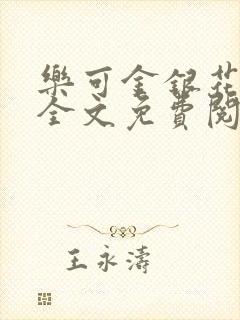 樂可金銀花
全文免費閱
王永濤